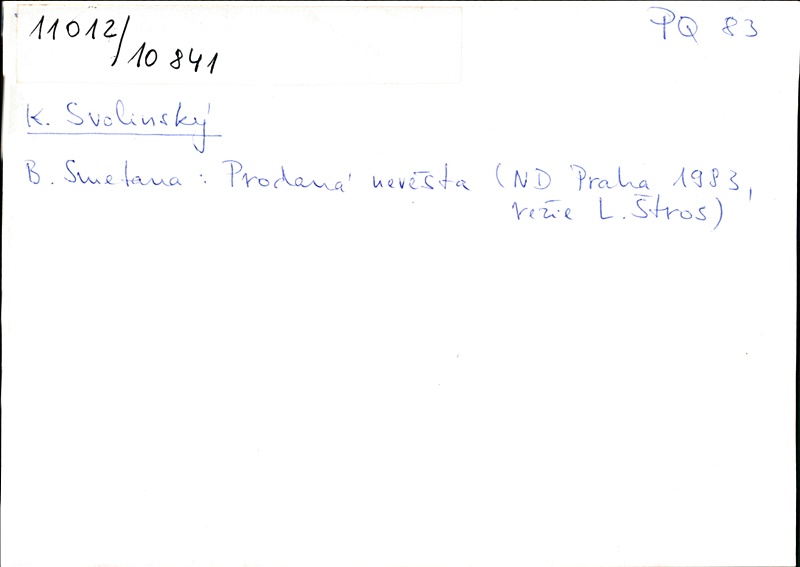 11012/10 841
PQ 83
K. Svolinský
B. Smetana : Prodaná nevěsta (ND Praha 1983,
režie L. Štros)